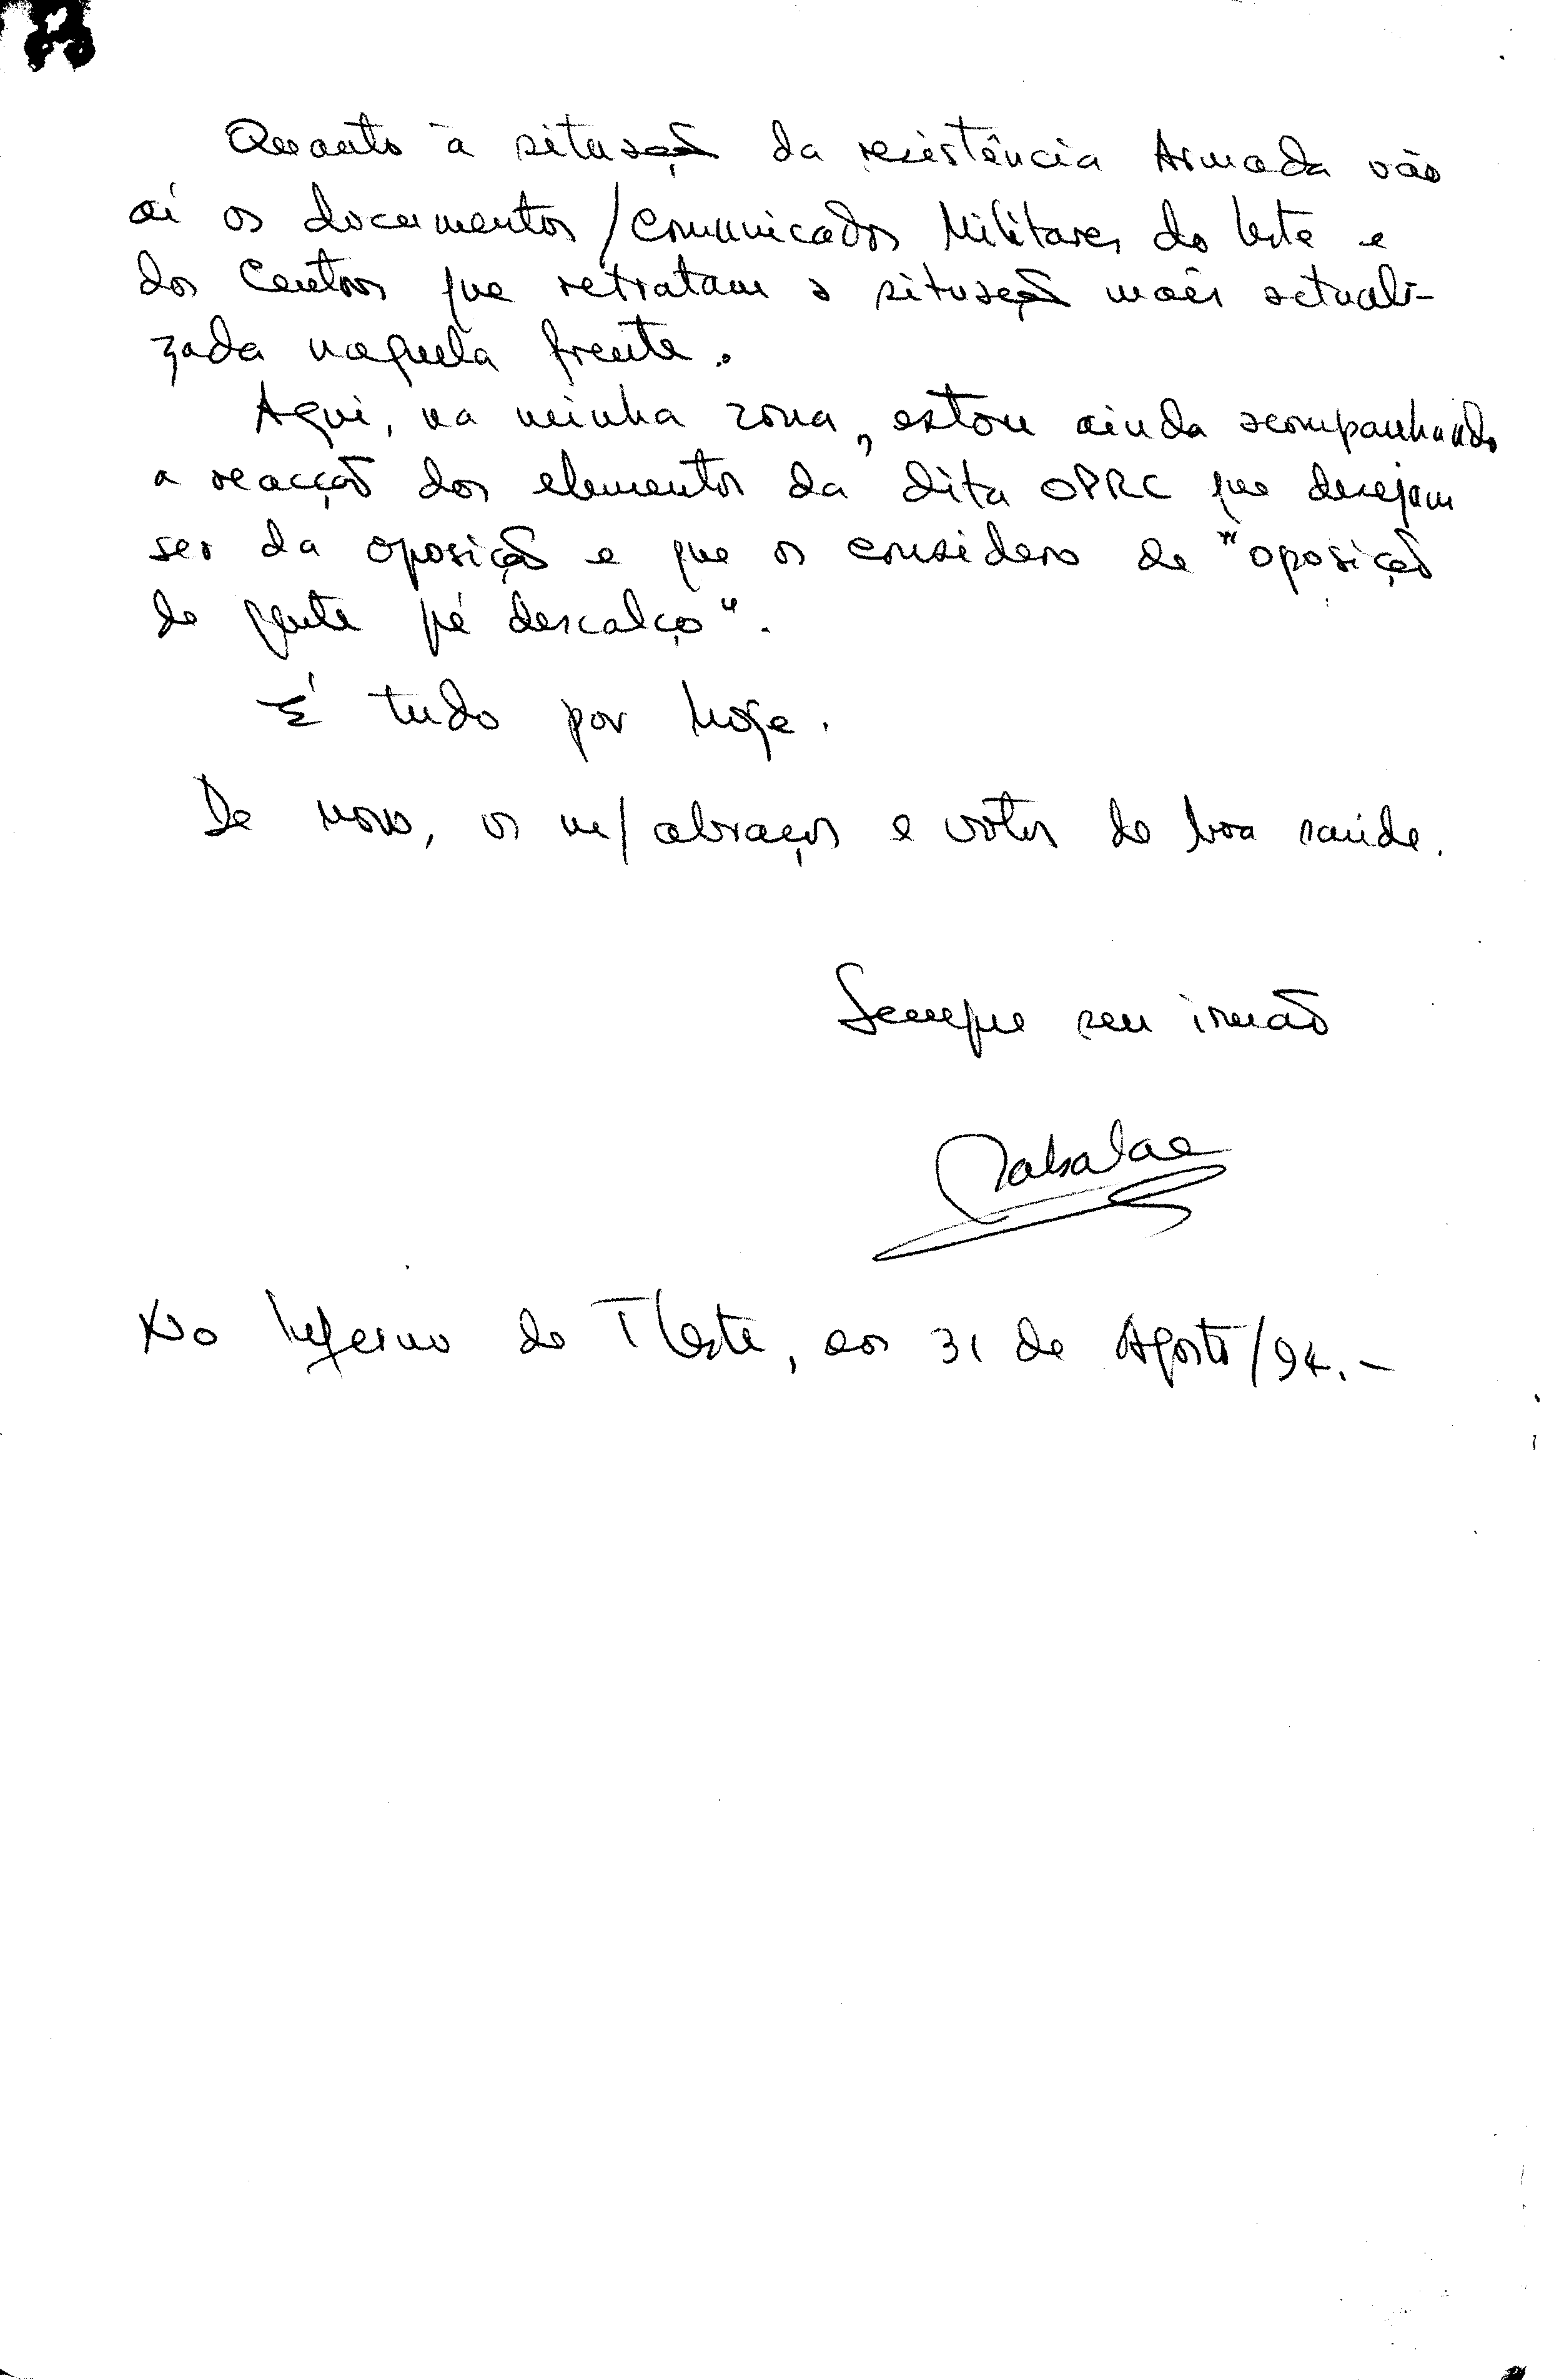 Quanto à situação da resistência Armada vão
aí os documentos/comunicados Militares do leste e
dos Centros que retratam a situação mais actuali-
zada naquela frente.
Aqui, na minha zona, estou ainda acompanhando
a reacção dos elementos da dita OPRC que desejam
ser da oposição e que os considero de "oposição
de gente pé descalço".
É tudo por hoje.
De novo, os m/abraços e votos de boa saúde.
Sempre seu irmão
No Inferno de TLeste, aos 31 de Agosto/94.-